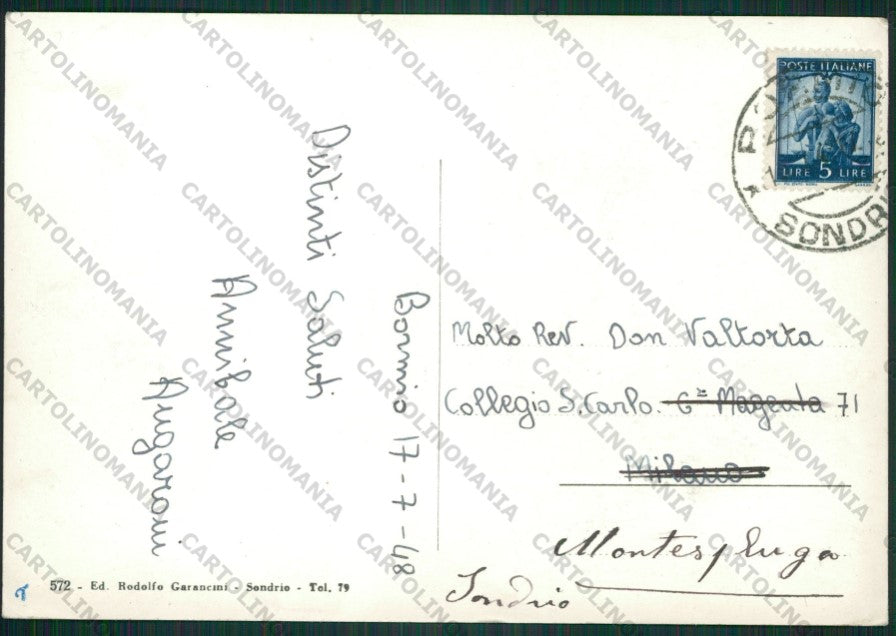 Bormio 17-7-48
Distinti Saluti
Annibale
POSTE ITALIANE
LIRE 5 LIRE
SONDRI
Molto Rev. Don Valtorta
Collegio S. Carlo. Cso Magenta 71
Milano
Montespluga
Sondrio
572 - Ed. Rodolfo Garancini - Sondrio - Tel. 79
CARTOLINOMANIA